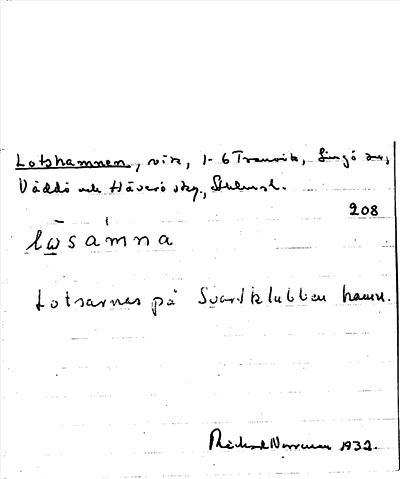 Lotshamnen, vik, 1-6 Tranvik, Singö sn,
Väddö och Häverö skg., Sthlmsl.
208
lω̱̄sàmna
Lotsarnas på Svartklubben hamn.
Richard Norrman 1932.